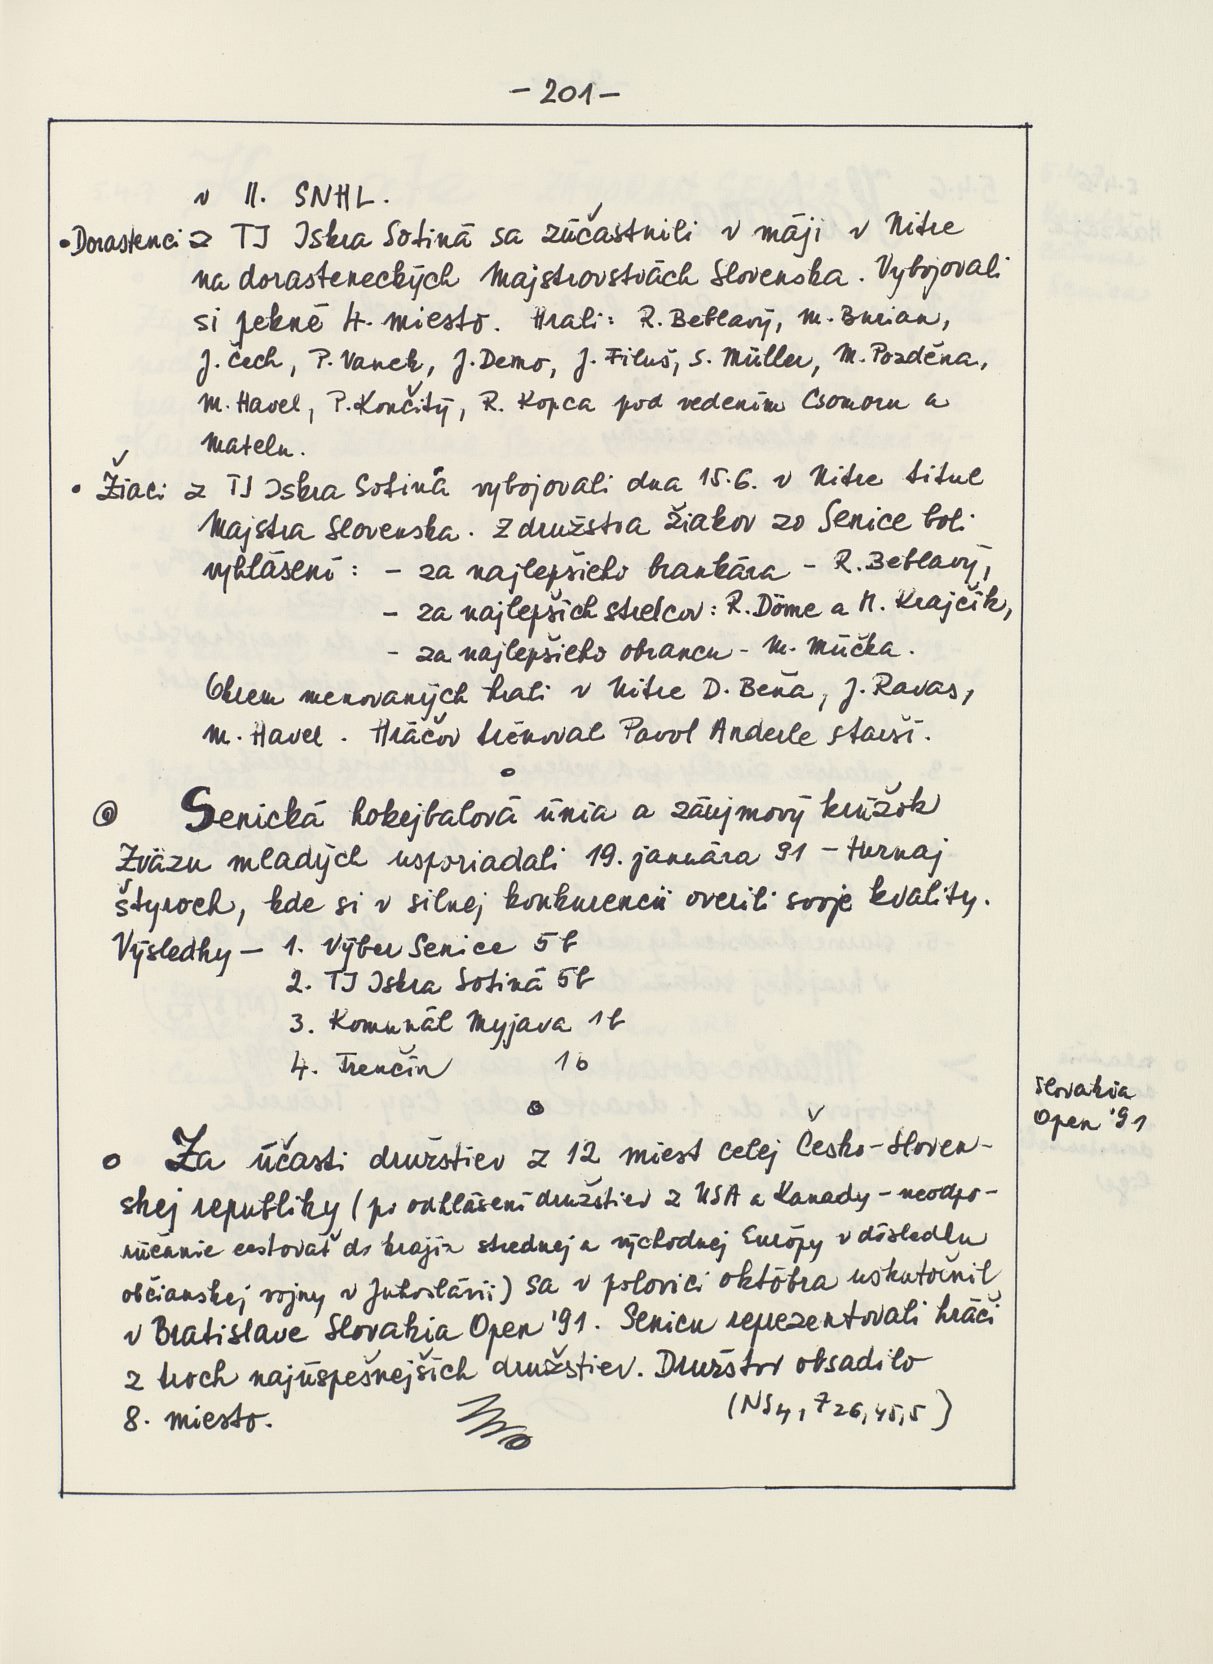 - 201 -
v II. SNHL.
• Dorastenci z TJ Iskra Sotiná sa zúčastnili v máji v Nitre
na dorasteneckých Majstrovstvách Slovenska. Vybojovali
si pekné 4. miesto. Hrali: R. Beblavý, M. Burian,
J. Čech, P. Vanek, J. Demo, J. Filuš, S. Müller, M. Pozděna,
M. Havel, P. Končitý, R. Kopca pod vedením Csomoru a
Matelu.
• Žiaci z TJ Iskra Sotiná vybojovali dna 15.6. v Nitre titul
Majstra Slovenska. Z družstva žiakov zo Senice boli
vyhlásení: - za najlepšieho brankára - R. Beblavý,
- za najlepších strelcov: R. Döme a M. Krajčík,
- za najlepšieho obrancu - M. Múčka.
Okrem menovaných hrali v Nitre D. Beňa, J. Ravas,
M. Havel. Hráčov trénoval Pavol Anderle starší.
Senická hokejbalová únia a záujmový krúžok
Zväzu mladých usporiadali 19. januára 91 - turnaj
štyroch, kde si v silnej konkurencii overili svoje kvality.
Výsledky - 1. Výber Senice 5 b
2. TJ Iskra Sotiná 5b
3. Komunál Myjava 1 b
4. Trenčín 1 b
Slovakia
Open '91
Za účasti družstiev z 12 miest celej Česko-Sloven-
skej republiky (po odhlásení družstiev z USA a Kanady - neodpo-
rúčanie cestovať do krajín strednej a východnej Európy v dôsledku
občianskej vojny v Juhoslávii) sa v polovici októbra uskutočnil
v Bratislave Slovakia Open '91. Senicu reprezentovali hráči
z troch najúspešnejších družstiev. Družstvo obsadilo
8. miesto. (NS4, 726, 45, 5)